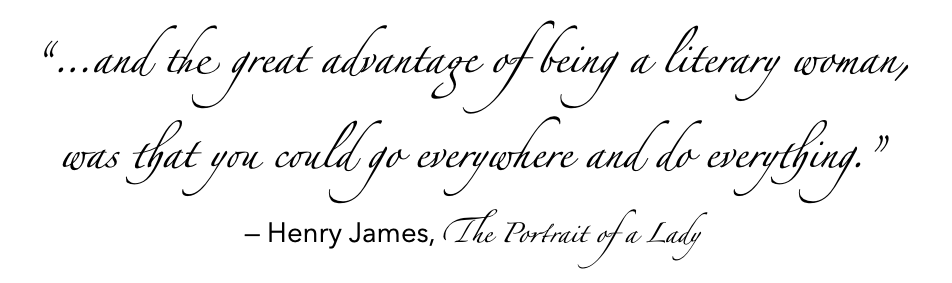 “...and the great advantage of being a literary woman,
was that you could go everywhere and do everything.”
– Henry James, The Portrait of a Lady